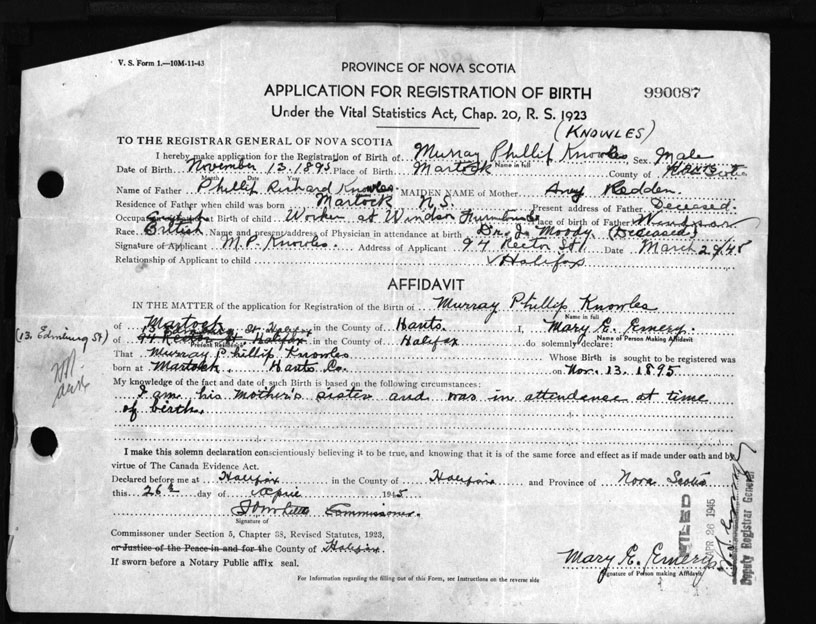 V. S. Form 1.—10M-11-43
PROVINCE OF NOVA SCOTIA
APPLICATION FOR REGISTRATION OF BIRTH
990087
Under the Vital Statistics Act, Chap. 20, R. S. 1923
(KNOWLES)
TO THE REGISTRAR GENERAL OF NOVA SCOTIA
I hereby make application for the Registration of Birth of Murray Phillip Knowles Sex Male
Name in full
Date of Birth November 13, 1895 Place of Birth Martock County of
Month Date Year
Name of Father Phillip Richard Knowles MAIDEN NAME of Mother Redden
Residence of Father when child was born Martock N.S. Present address of Father Deceased.
Occupation at Birth of child Worker at Windsor Place of birth of Father
Race British Name and present address of Physician in attendance at birth Dr. J. Moody (Deceased)
Signature of Applicant M.P. Knowles. Address of Applicant 94 Rector St. Date March 29/45
Relationship of Applicant to child Halifax
AFFIDAVIT
IN THE MATTER of the application for Registration of the Birth of Murray Phillip Knowles
Name in full
of Martock in the County of Hants. I, Mary E. Emery.
Name of Person Making Affidavit
(13. Edinburg St) of Halifax in the County of Halifax do solemnly declare:
Present Residence
That Murray Phillip Knowles Whose Birth is sought to be registered was
born at Martock. Hants Co. on Nov. 13. 1895
My knowledge of the fact and date of such Birth is based on the following circumstances:
I am his mother's sister and was in attendance at time
of birth.
I make this solemn declaration conscientiously believing it to be true, and knowing that it is of the same force and effect as if made under oath and by
virtue of The Canada Evidence Act.
Declared before me at Halifax in the County of Halifax and Province of Nova Scotia
this 26th day of April 1945
Commissioner.
Signature of
Commissioner under Section 5, Chapter 38, Revised Statutes, 1923,
or Justice of the Peace in and for the County of Halifax.
If sworn before a Notary Public affix seal.
Mary E. Emery
Signature of Person making Affidavit
For Information regarding the filling out of this Form, see Instructions on the reverse side
FILED
APR 26 1945
Deputy Registrar General